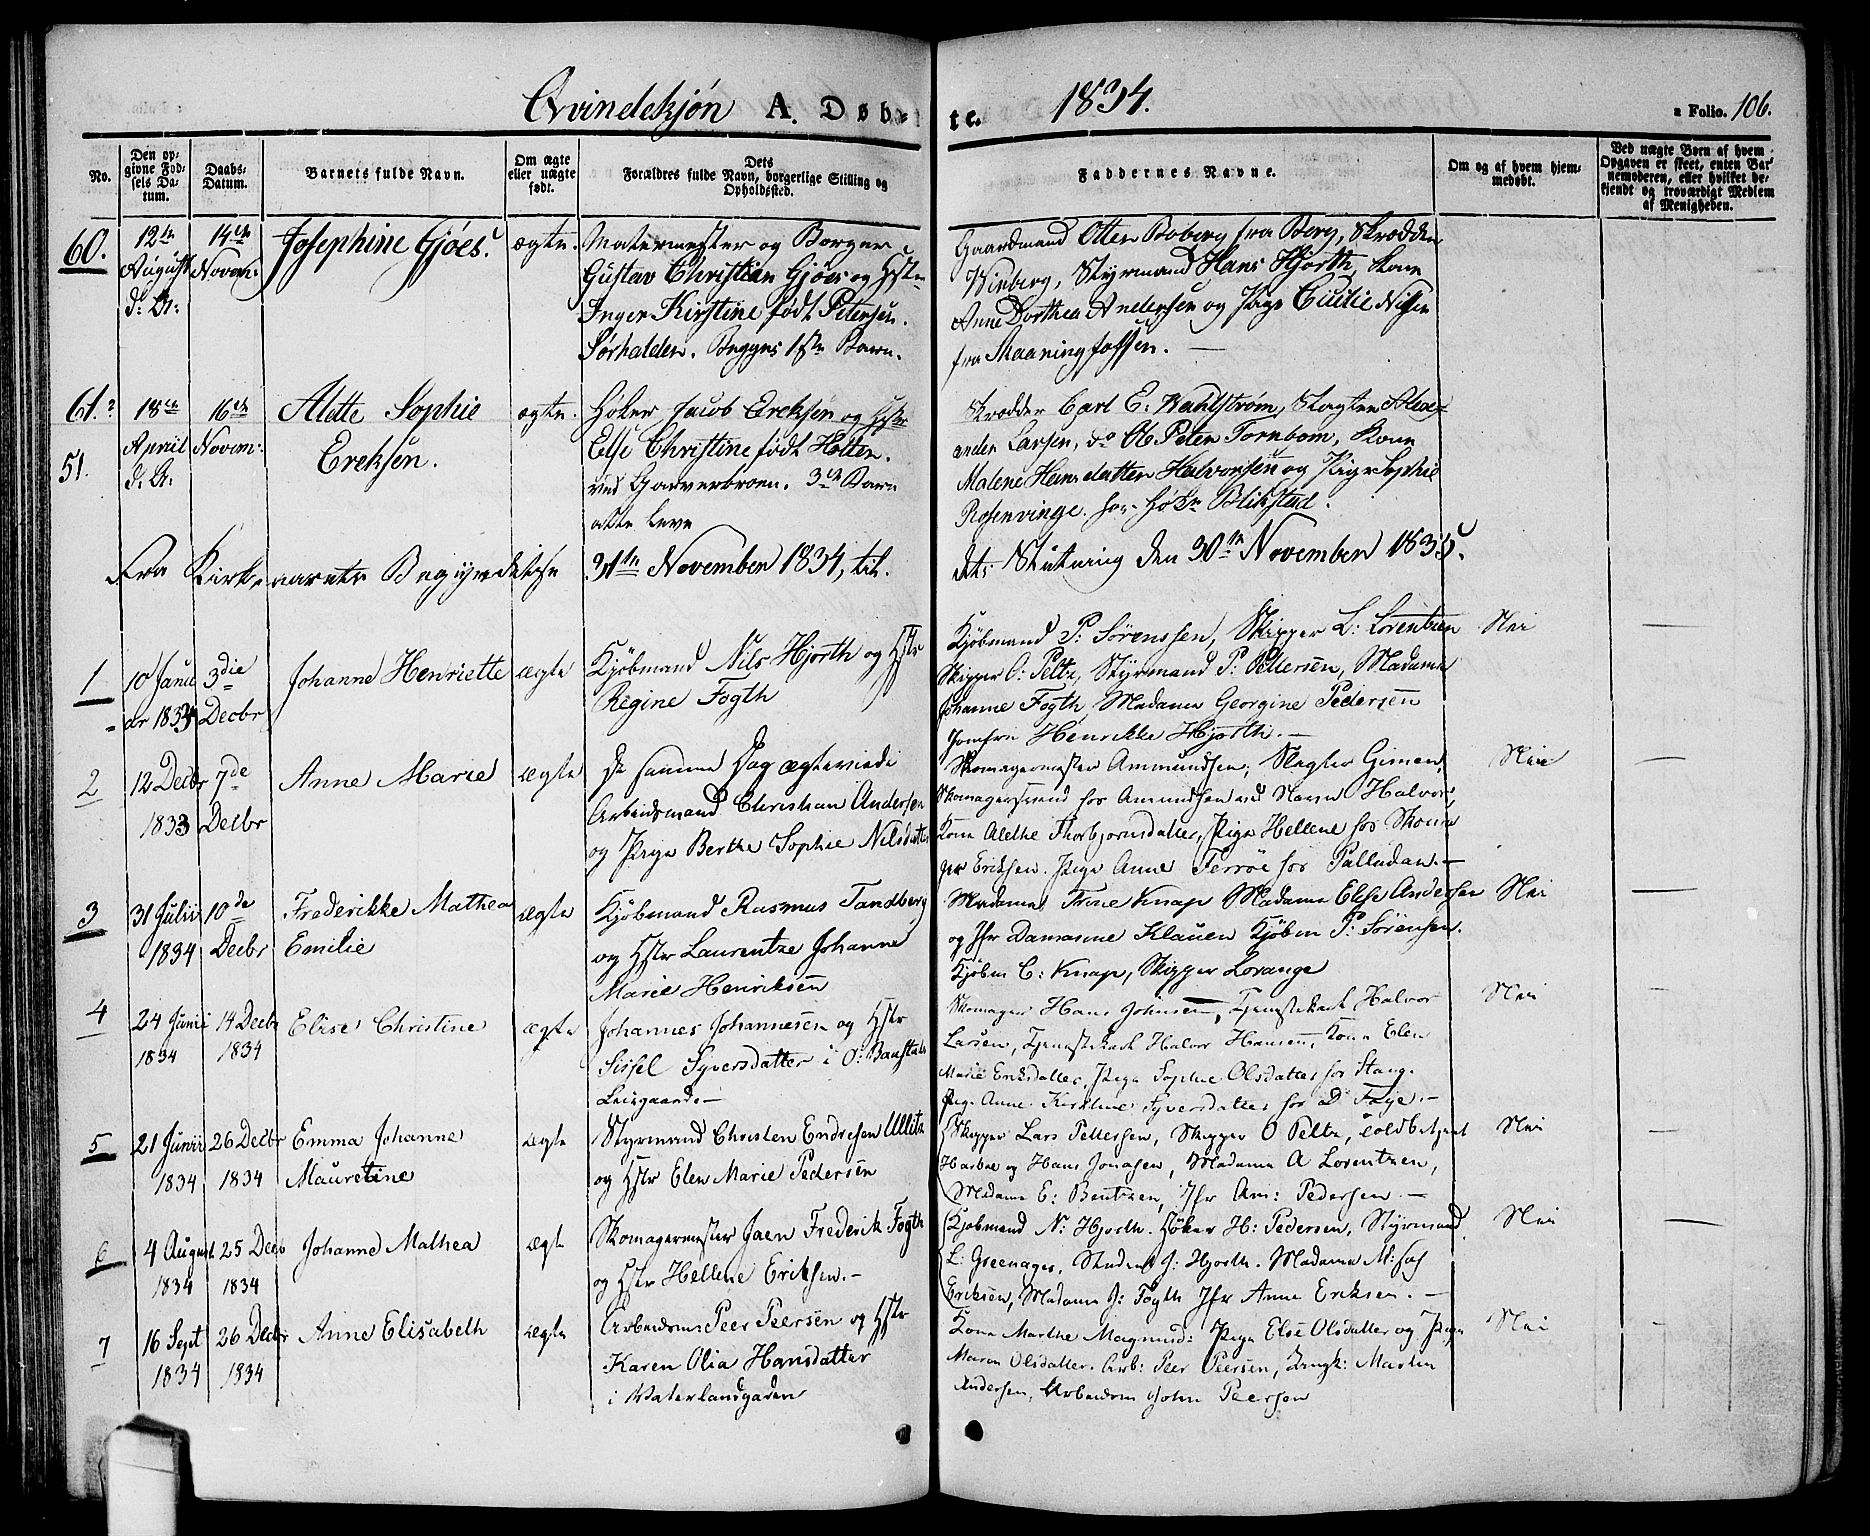 Qvindekjøn A. Døb= te. 1834. a Folio. 106.
No.
Den op-
givne Fød-
sels Da-
tum.
Daabs-
Datum.
Barnets fulde Navn.
Om ægte
eller uægte
født.
Dets
Forældres fulde Navn, borgerlige Stilling og
Opholdssted.
Faddernes Navne.
Om og af hvem hjem-
medøbt.
Ved uægte Børn af hvem
Opgaven er skeet, enten Bar-
nemoderen, eller hvilket be-
kjendt og troværdigt Medlem
af Menigheden.
60.
12te
August
d: A:
14de
Novem:
Josephine Gjøes.
ægte.
Malermester og Borger
Gustav Christian Gjöes og Hstr
Inger Kirstine født Petersen.
Sørhalden. Begges 1ste Barn.
Gaardmand Otter Boberg fra Berg, Skrædder
Winberg, Styrmand Hans Hjorth, Kone
Anne Dorthea Andersen og Pige Cicilie Nilsen
fra Maaningfossen. —
61.
51.
18de
April
d. A.
16de
Novem:
Alette Sophie
Ereksen.
ægte.
Høker Jacob Ereksen og Hstr
Else Christine født Holter.
ved Garverbroen. 3de Barn
alle leve
Skrædder Carl E. Wahlstrøm, Slagter Alex-
ander Larsen, do Ob Peter Tornbom, Kone
Malene Hansdatter Halvorsen og Pige Sophie
Rosenvinge. hos Høker Blikstad.
Fra Kirkeaarets Begyndelse 31te November 1834, til
dets Slutning den 30te November 1835.
1
10 Janu
ar 1834
3die
Decbr
Johanne Henriette
ægte
Kjøbmand Nils Hjorth og Hstr
Regine Fogth
Kjöbmand P: Sörenssen, Skipper L: Lorentzen
Skipper O: Peltz, Styrmand P: Pettersen, Madame
Johanne Fogth, Madame Georgine Pedersen
Jomfru Henrikke Hjorth. —
Nei
2
12 Decbr
1833
7de
Decbr
Anne Marie
ægte
De samme Dag ægteviede
Arbeidsmand Christian Andersen
og Pige Berthe Sophie Nilsdatter
Skomagermester Ammundsen, Slagter Gimen,
Skomagersvend hos Amundsen ved Navn Halvor,
Kone Alethe Thorbjornsdatter, Pige Hellene hos Skoma
ger Eriksen. Pige Anne Terröe hos Palludan. —
Nei
3
31 Julii
1834
10de
Decbr
Frederikke Mathea
Emilie
ægte
Kjøbmand Rasmus Tandberg
og Hstr Laurentze Johanne
Marie Henriksen
Madame Trine Knap Madame Elise Andersen
og Jfr Damasine Klauen Kjöbm P: Sörensen.
Kjöbm C: Knap, Skipper Lorange
Nei
4
24 Junii
1834
14 Decbr
1834
Elise Christine
ægte
Johannes Johannesen og Hstr
Sissel Syversdatter i O: Banstads
Leiegaard. —
Skomager Hans Johnsen, Tjenestekarl Halvor
Larsen, Tjenestekarl Halvor Hansen, Kone Elen
Marie Eriksdatter, Pige Sophie Olsdatter hos Stang.
Pige Anne Kirstine Syversdatter hos D: Faye. —
Nei
5
21 Junii
1834
26 Decbr
1834
Emma Johanne
Mauretine
ægte
Styrmand Christen Endresen Ullitz
og Hstr Elen Marie Pedersen
Skipper Lars Pettersen, Skipper O Peltz, Toldbetjent
Harboe og Hans Jonasen, Madame A Lorentzen,
Madame E: Bentzen, Jfr Am: Pedersen. —
Nei
6
4 August
1834
25 Decb
1834
Johanne Mathea
ægte
Skomagermester Jaen Frederik Fogth
og Hstr Hellene Eriksen. —
Kjøbmand N: Hjorth. Höker H: Pedersen, Styrmand
L: Greenager, Student J: Hjorth. Madame M: Saf
Eriksen, Madame J: Fogth Jfr Anne Eriksen. —
Nei
7
16 Sept
1834
26 Decbr
1834
Anne Elisabeth
ægte
Arbeidsm Peer Peersen og Hstr
Karen Olia Hansdatter
i Vaterlandgaden
Kone Marthe Magnusd: Pige Else Olsdatter og Pige
Maren Olsdatter. Arb: Peer Peersen, Martin
Andersen, Arbeidsm John Peersen
Nei